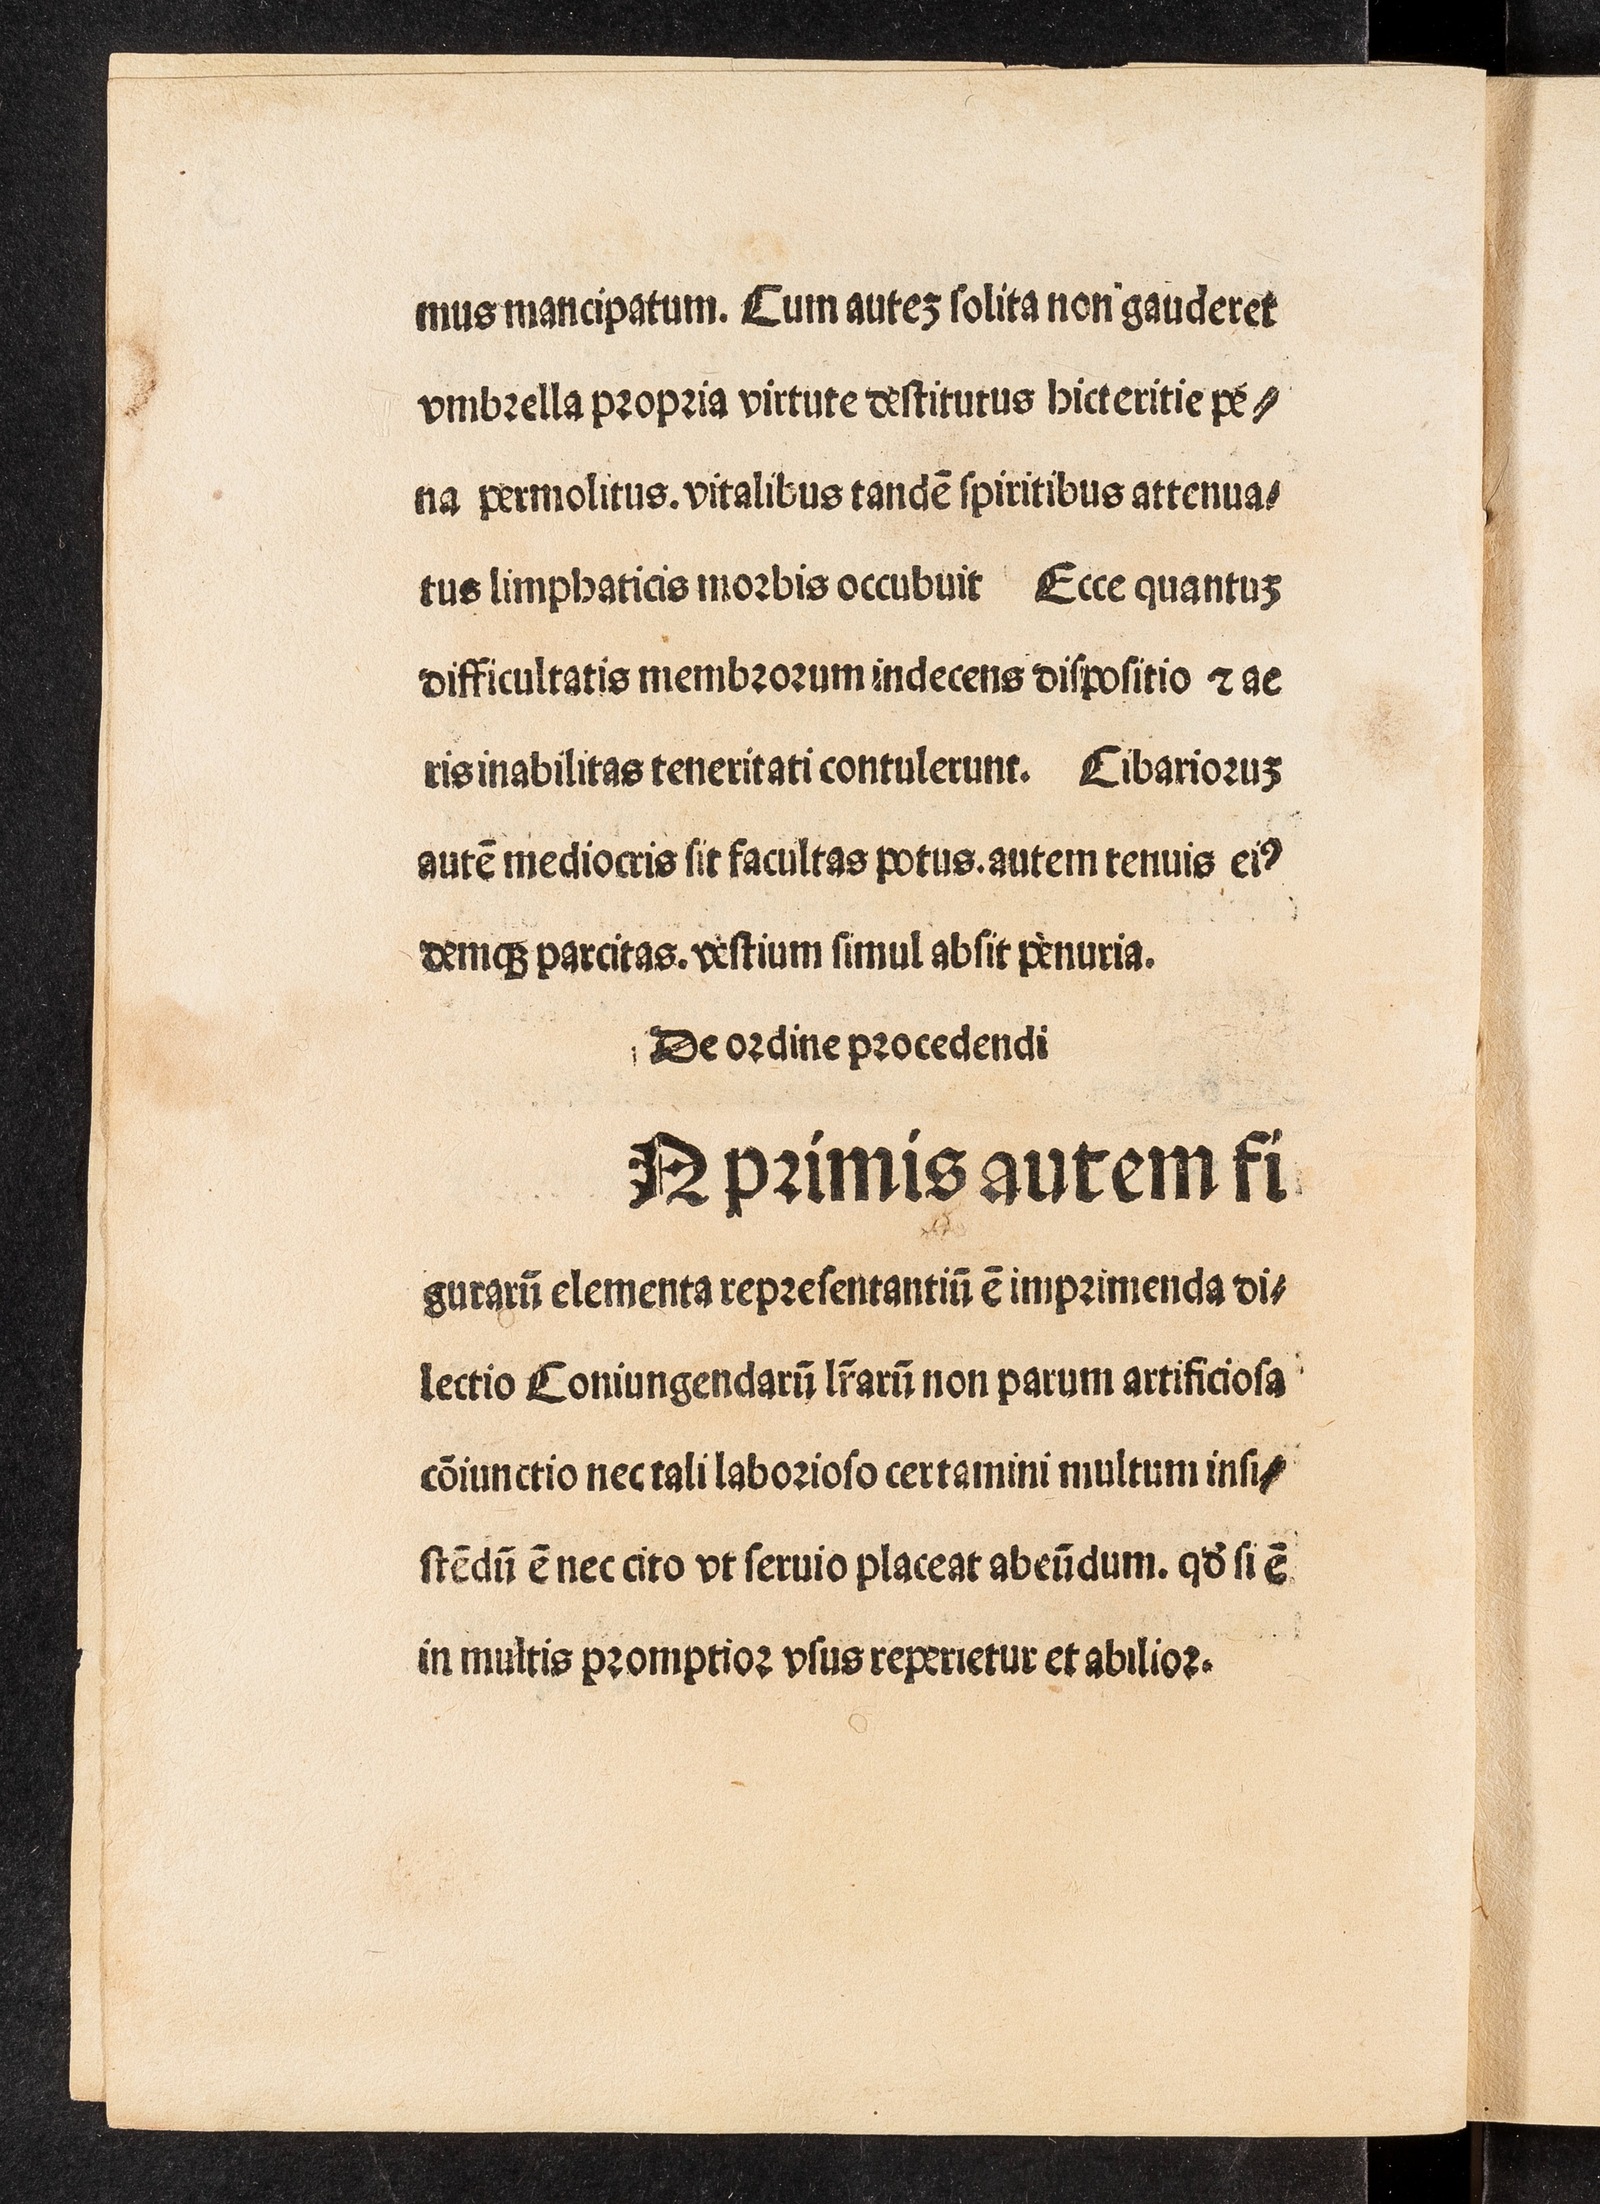 mus mancipatum. Cum auteꝫ ſolita non gauderet
vmbꝛella pꝛopꝛia virtute deſtitutus hicteritie pe⸗
na permolitus. vitalibus tandē ſpiritibus attenua⸗
tus limphaticis moꝛbis occubuit Ecce quantuꝫ
difficultatis membꝛoꝛum indecens diſpoſitio ⁊ ae
ris inabilitas teneritati contulerunt. Cibarioꝛuꝫ
autē mediocris ſit facultas potus. autem tenuis eiꝰ
demqꝫ parcitas. veſtium ſimul abſit penuria.
De oꝛdine pꝛocedendi
N pꝛimis autem fi
gurarū elementa repꝛeſentantiū ē impꝛimenda di⸗
lectio Coniungendarū lr̄arū non parum artificioſa
cōiunctio nec tali laboꝛioſo certamini multum inſi⸗
ſtēdū ē nec cito vt ſeruio placeat abeūdum. qđ ſi ē
in multis pꝛomptioꝛ vſus reperietur et abilioꝛ.